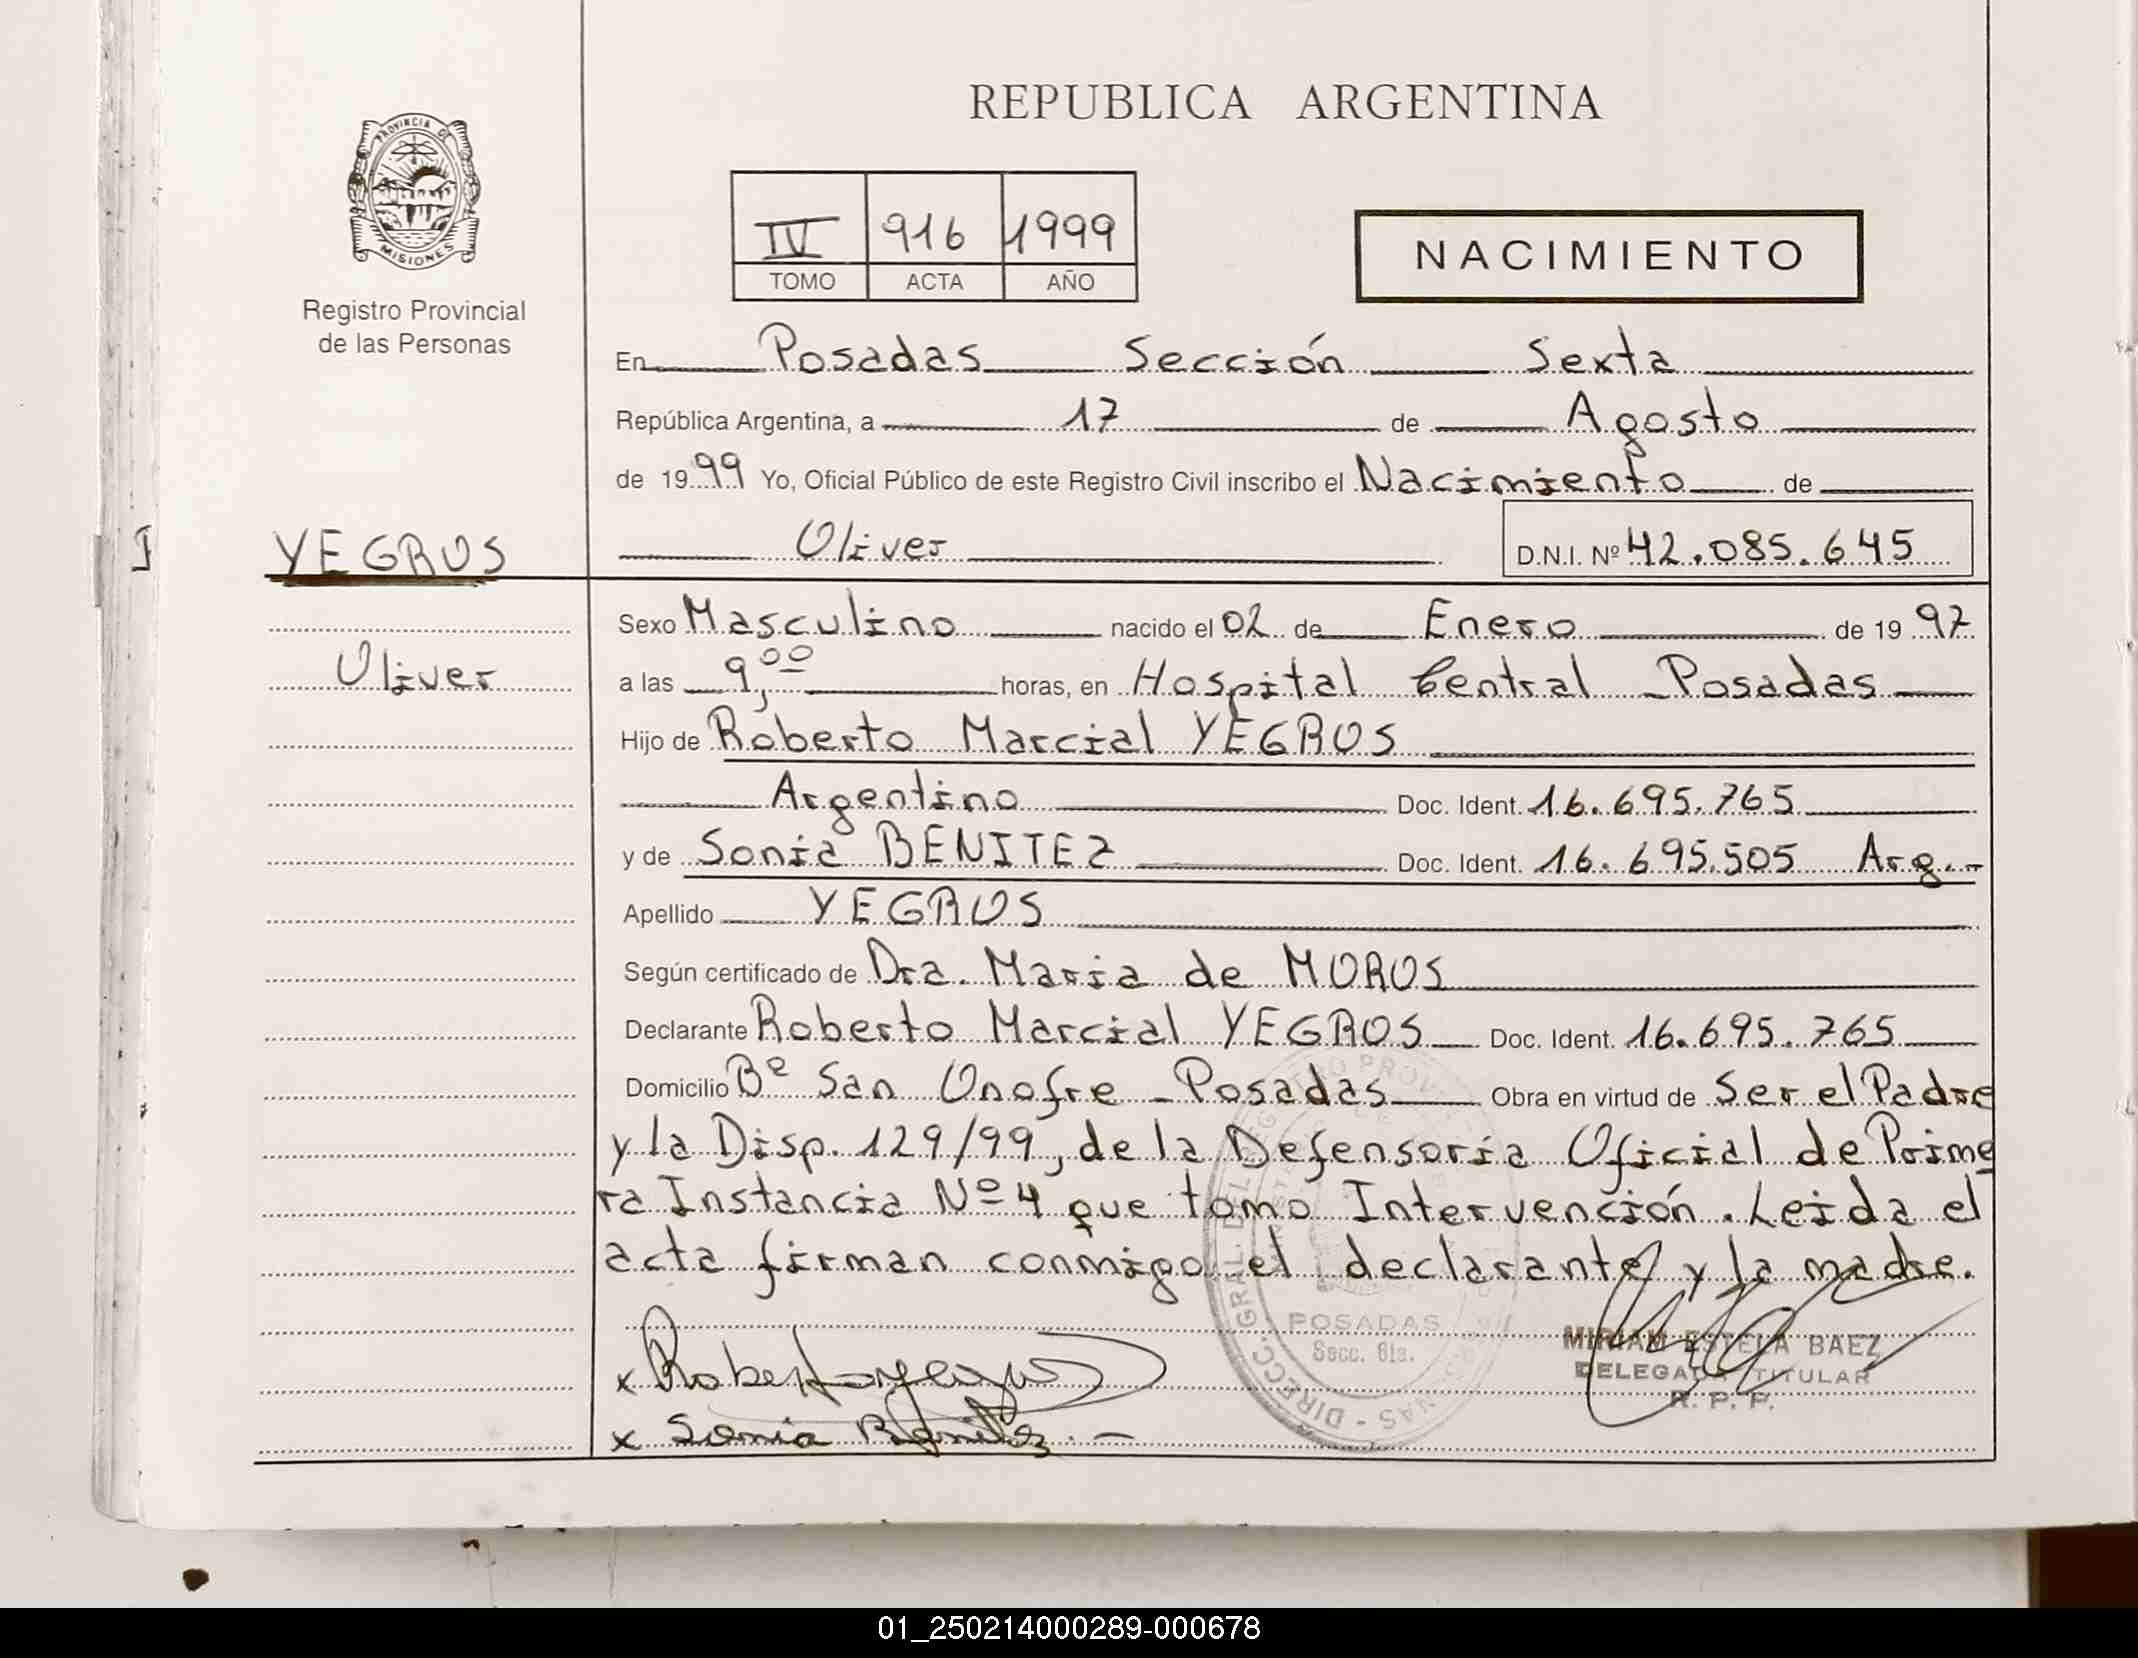 REPUBLICA ARGENTINA
PROVINCIA DE
MISIONES
Registro Provincial
de las Personas
IV 916 1999
TOMO ACTA AÑO
NACIMIENTO
En Posadas Sección Sexta
República Argentina, a 17 de Agosto
de 1999 Yo, Oficial Público de este Registro Civil inscribo el Nacimiento de
YEGROS
Oliver D.N.I. Nº 42.085.645
Sexo Masculino nacido el 02 de Enero de 1997
Oliver
a las 9,00 horas, en Hospital Central - Posadas
Hijo de Roberto Marcial YEGROS
Argentino Doc. Ident. 16.695.765
y de Sonia BENITEZ Doc. Ident. 16.695.505 Arg.-
Apellido YEGROS
Según certificado de Dra. Maria de MOROS
Declarante Roberto Marcial YEGROS Doc. Ident. 16.695.765
Domicilio Bº San Onofre - Posadas Obra en virtud de Ser el Padre
y la Disp. 129/99, de la Defensoría Oficial de Prime
ra Instancia Nº 4 que tomó Intervención. Leida el
acta firman conmigo el declarante y la madre.
POSADAS
Secc. 6ta.
MIRIAM ESTELA BAEZ
DELEGADA TITULAR
R. P. P.
x Roberto Yegros
x Sonia Benitez.-
01_250214000289-000678